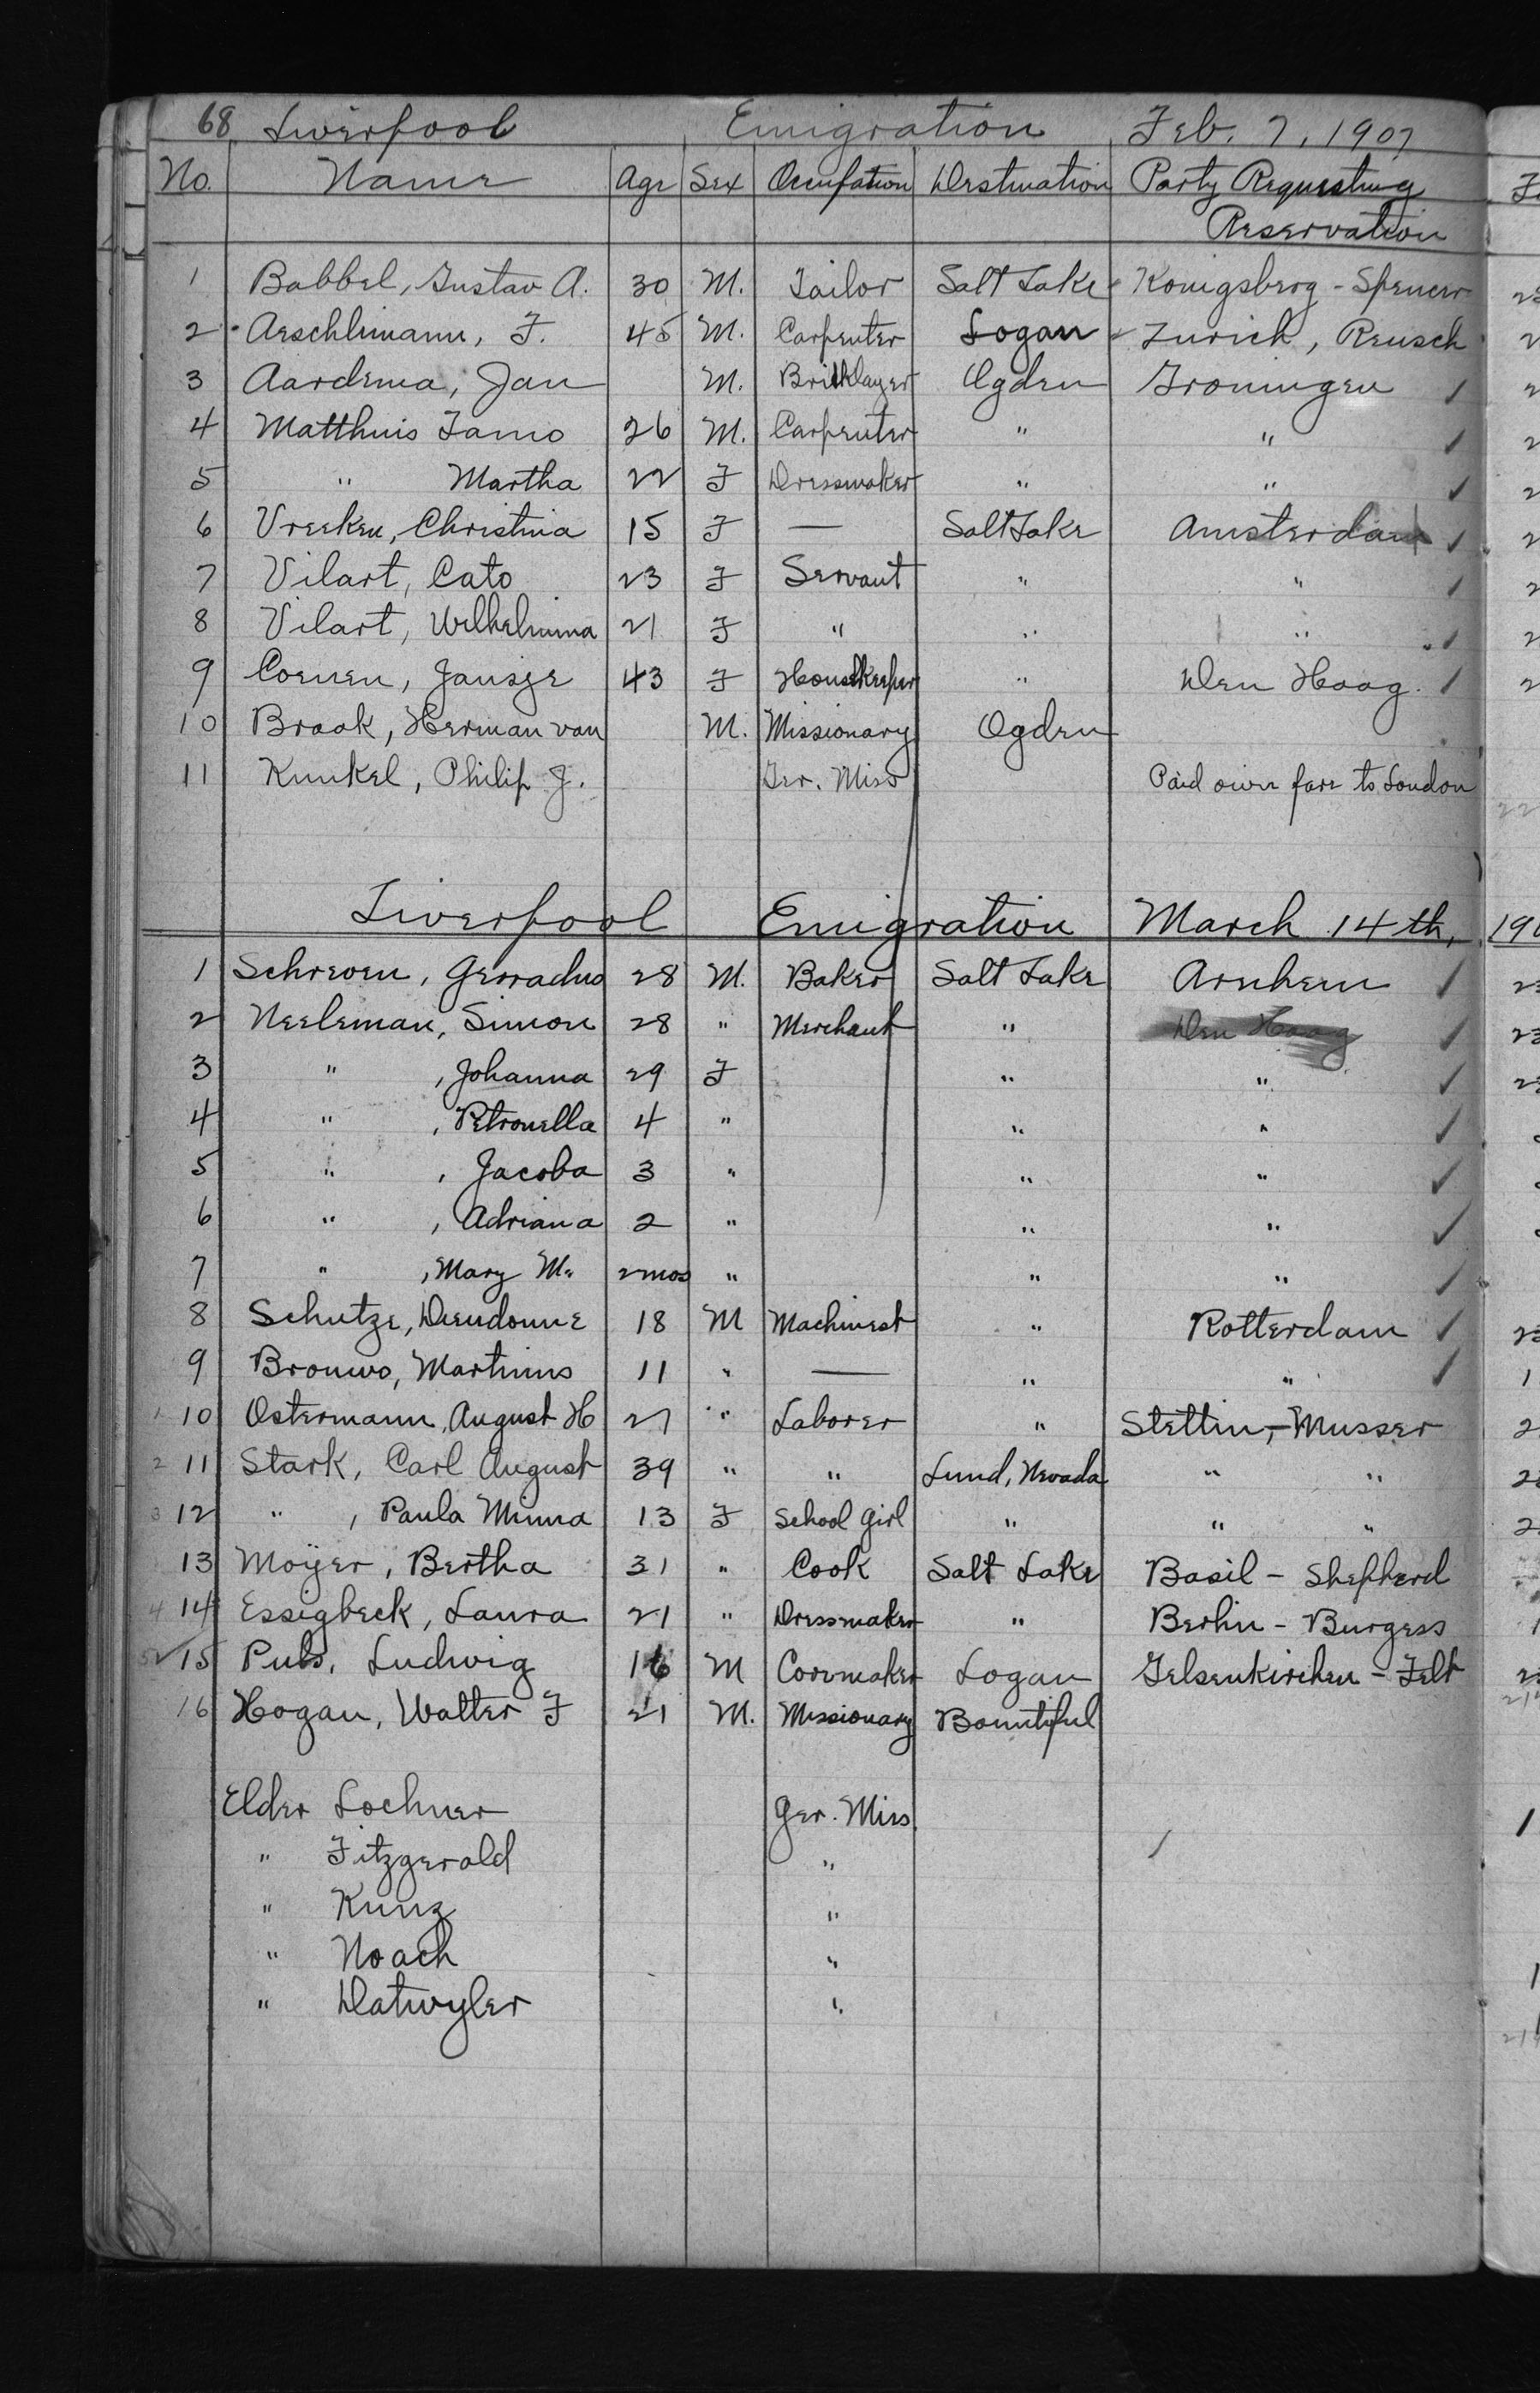 68 Liverpool Emigration Feb. 7, 1907
No. Name Age Sex Occupation Destination Party Requesting
Reservation
1 Babbel, Gustav A. 30 M. Tailor Salt Lake Konigsberg - Spencer
2 Aeschlimann, F. 45 M. Carpenter Logan Zurich, Reusch
3 Aardema, Jan M. Bricklayer Ogden Groningen ✓
4 Matthuis Tamo 26 M. Carpenter " " ✓
5 " Martha 22 F Dressmaker " " ✓
6 Vreeken, Christina 15 F — Salt Lake Amsterdam ✓
7 Vilart, Cato 23 F Servant " " ✓
8 Vilart, Wilhelmina 21 F " " " ✓
9 Coenen, Jansje 43 F Housekeeper " Den Haag. ✓
10 Braak, Herman van M. Missionary Ogden
11 Kunkel, Philip J. Ger. Miss Paid own fare to London
Liverpool Emigration March 14th, 190
1 Schreven, Gerradus 28 M. Baker Salt Lake Arnhem ✓
2 Neeleman, Simon 28 " Merchant " Den Haag ✓
3 " , Johanna 29 F " " ✓
4 " , Petronella 4 " " " ✓
5 " , Jacoba 3 " " " ✓
6 " , Adriana 2 " " " ✓
7 " , Mary M. 2 mos " " " ✓
8 Schutze, Dieudonne 18 M Machinest " Rotterdam ✓
9 Brouwo, Martinus 11 " — " " ✓
1 10 Ostermann, August H 27 " Laborer " Stettin, - Musser
2 11 Stark, Carl August 39 " " Lund, Nevada " "
3 12 " , Paula Minna 13 F School Girl " " "
13 Moÿer, Bertha 31 " Cook Salt Lake Basil - Shepherd
4 14 Essigbeck, Laura 21 " Dressmaker " Berlin - Burgess
5 15 Puls, Ludwig 16 M Coremaker Logan Gelsenkirchen - Felt
16 Hogan, Walter F 21 M. Missionary Bountiful
Elder Lochner Ger. Miss
" Fitzgerald "
" Kunz "
" Noach "
" Datwyler "